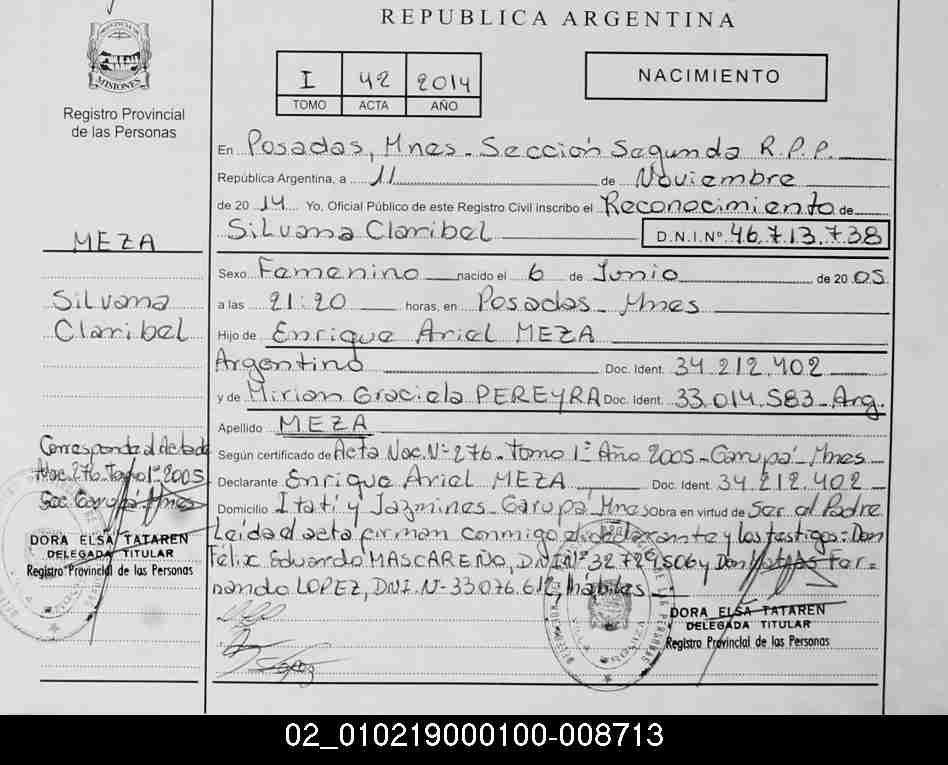 REPUBLICA ARGENTINA
MISIONES
Registro Provincial
de las Personas
I 42 2014
TOMO ACTA AÑO
NACIMIENTO
En Posadas, Mnes. Sección Segunda R.P.P.
República Argentina, a 11 de Noviembre
de 2014 Yo, Oficial Público de este Registro Civil inscribo el Reconocimiento de
Silvana Claribel D.N.I.Nº 46.713.738
Sexo Femenino nacido el 6 de Junio de 2005
a las 21:20 horas, en Posadas - Mnes
Hijo de Enrique Ariel MEZA
Argentino Doc. Ident. 34.212.402
y de Mirian Graciela PEREYRA Doc. Ident. 33.014.583 - Arg.
Apellido MEZA
Según certificado de Acta Nac. Nº 276 - Tomo 1º Año 2005 - Garupá - Mnes
Declarante Enrique Ariel MEZA Doc. Ident. 34.212.402
Domicilio Itatí y Jazmines - Garupá, Mnes Obra en virtud de Ser el Padre
Leída el acta firman conmigo el declarante y los testigos: Don
Félix Eduardo MASCAREÑO, D.N.I Nº 32.729.506 y Don Fer-
nando LOPEZ, DNI. N- 33.076.612, hábiles
DORA ELSA TATAREN
DELEGADA TITULAR
Registro Provincial de las Personas
MEZA
Silvana
Claribel
Corresponde al Acta de
Nac. 276 Tomo 1º 2005
Sec. Garupá Mnes
DORA ELSA TATAREN
DELEGADA TITULAR
Registro Provincial de las Personas
02_010219000100-008713